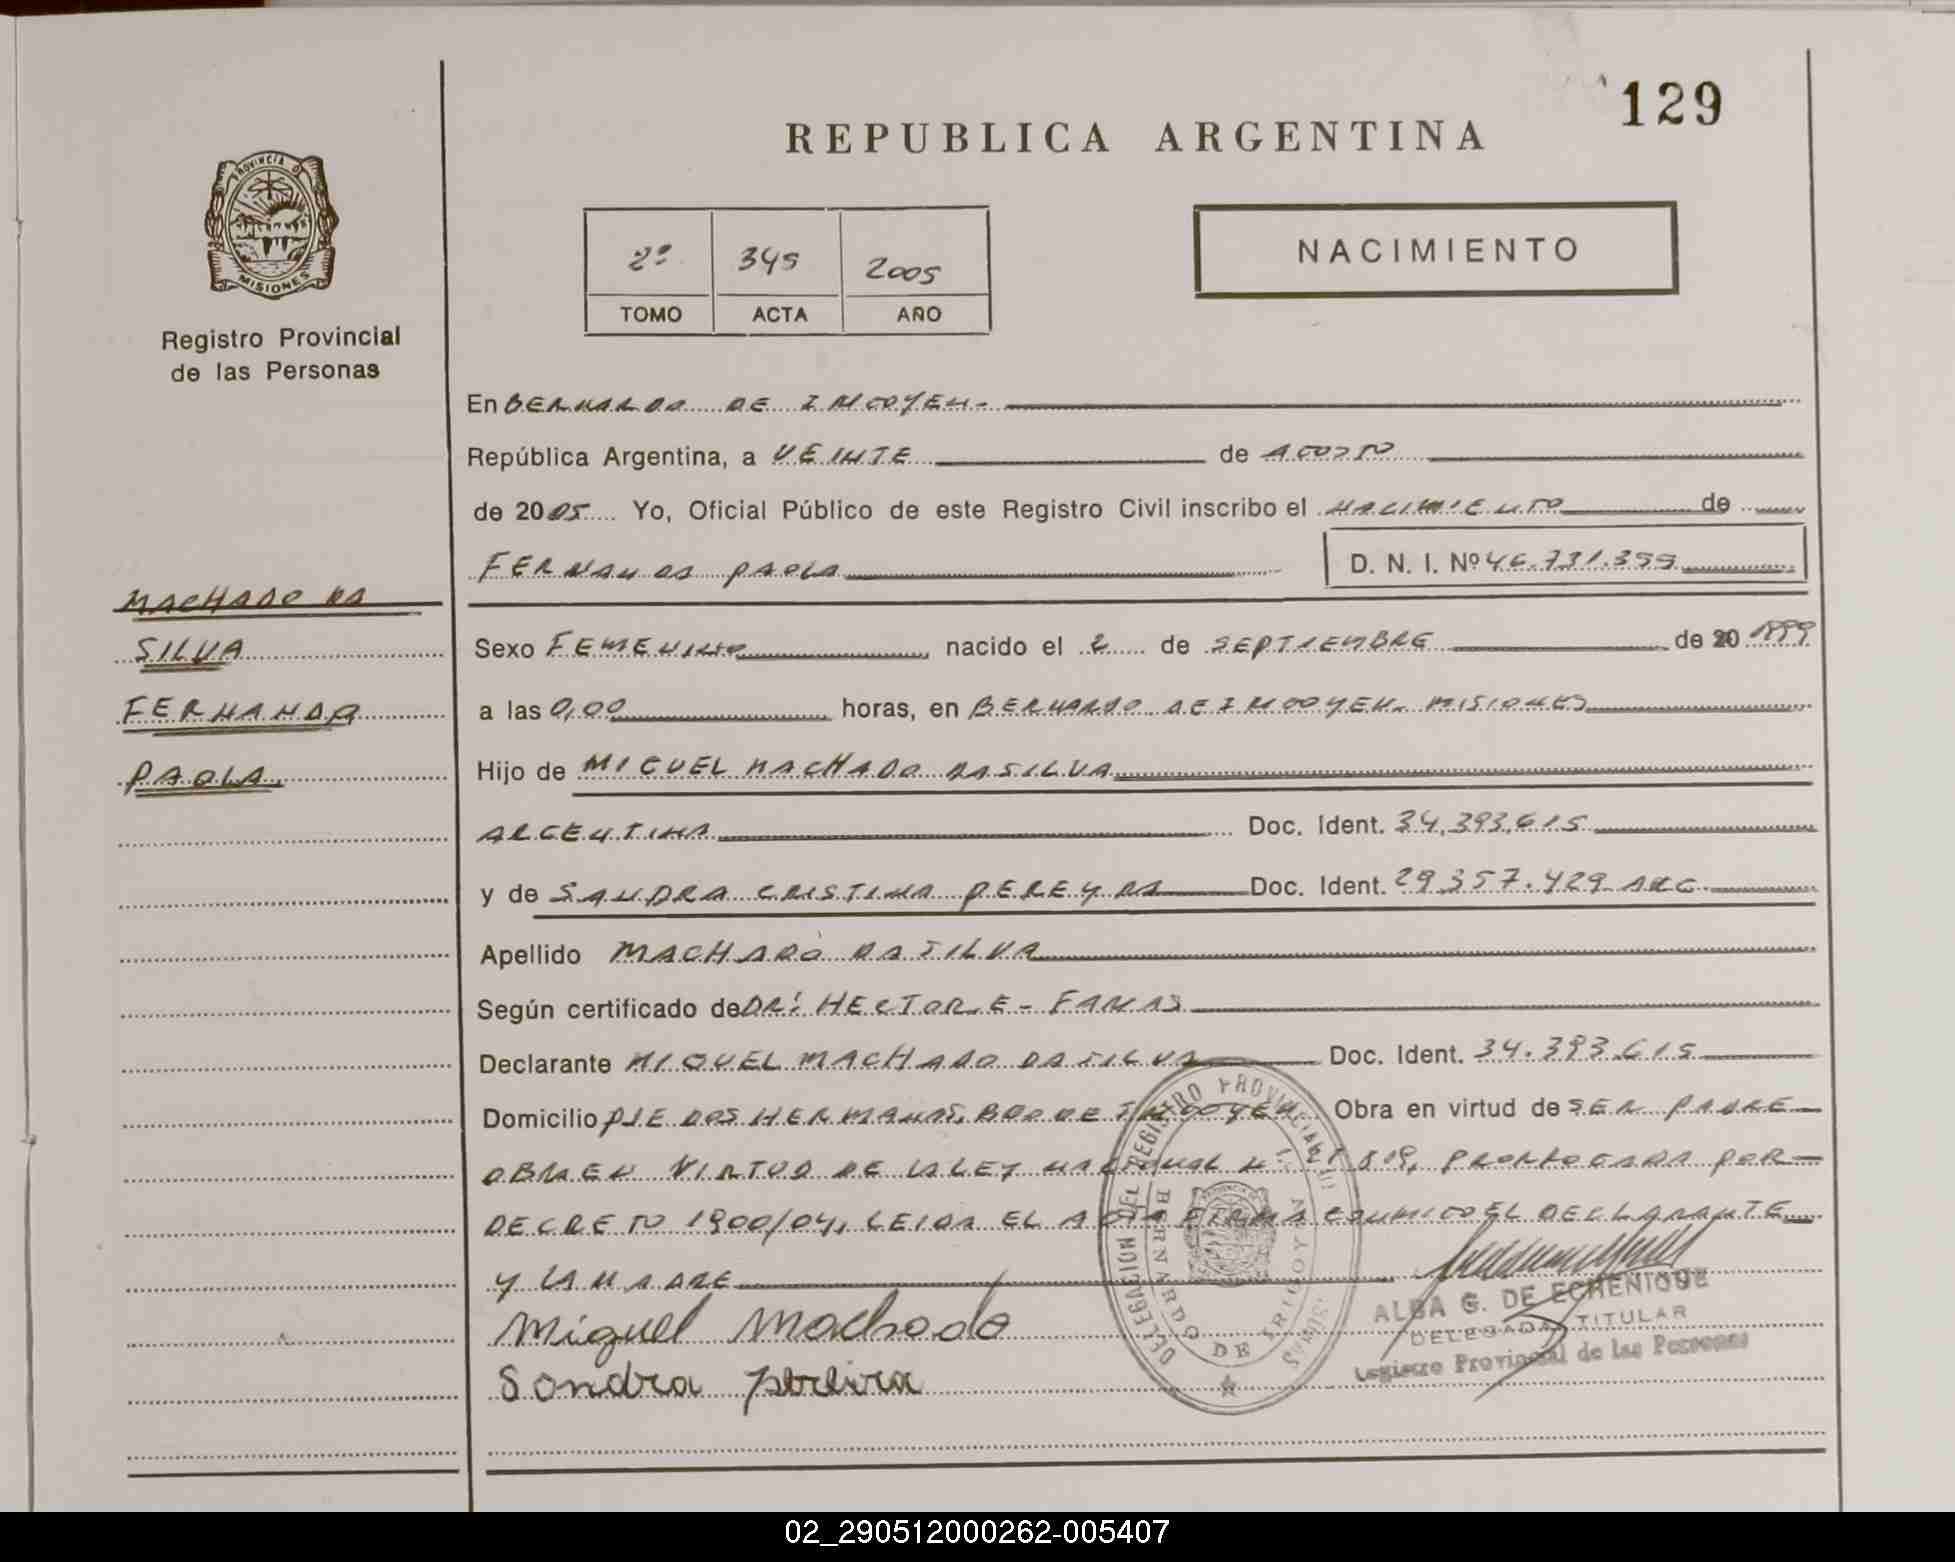 129
REPUBLICA ARGENTINA
PROVINCIA DE
MISIONES
Registro Provincial
de las Personas
2º 345 2005
TOMO ACTA AÑO
NACIMIENTO
En BERNARDO DE IRIGOYEN.-
República Argentina, a VEINTE de AGOSTO
de 2005 Yo, Oficial Público de este Registro Civil inscribo el NACIMIENTO de
FERNANDA PAOLA D. N. I. Nº 46.731.399
MACHADO DA
SILVA
FERNANDA
PAOLA.
Sexo FEMENINO nacido el 2 de SEPTIEMBRE de 20 1999
a las 0,00 horas, en BERNARDO DE IRIGOYEN. MISIONES
Hijo de MIGUEL MACHADO DA SILVA
ARGENTINA Doc. Ident. 34.393.615
y de SANDRA CRISTINA PEREYRA Doc. Ident. 29.357.429 ARG.
Apellido MACHADO DA SILVA
Según certificado de DR: HECTOR E-
Declarante MIGUEL MACHADO DA SILVA Doc. Ident. 34.393.615
Domicilio PJE DOS HERMANAS, BDO DE IRIGOYEN. Obra en virtud de SER PADRE
OBRA EN VIRTUD DE LA LEY NACIONAL POR
DECRETO 1900/04, LEIDA EL ACTA FIRMA CONMIGO EL DECLARANTE
Y LA MADRE
Miguel Machado
Sandra Pereira
DELEGACION DEL REGISTRO PROVINCIAL
BERNARDO DE IRIGOYEN
ALBA G. DE ECHENIQUE
DELEGADA TITULAR
Registro Provincial de las Personas
02_290512000262-005407